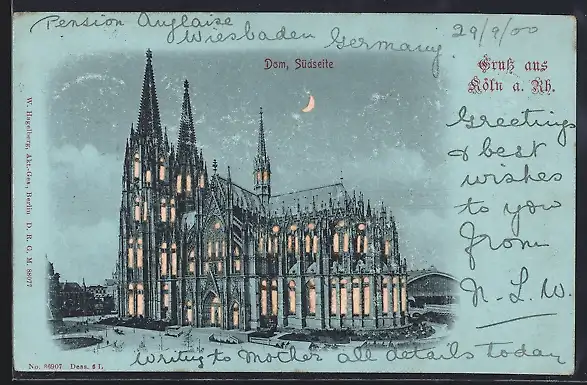 Pension Anglaise
Wiesbaden Germany. 29/9/00
Dom, Südseite
Gruß aus
Köln a. Rh.
Greetings
& best
wishes
to you
from
N. L. W.
W. Hagelberg, Akt.-Ges., Berlin D. R. G. M. 88077
Writing to Mother all details today
No. 86907 Dess. 6 I.